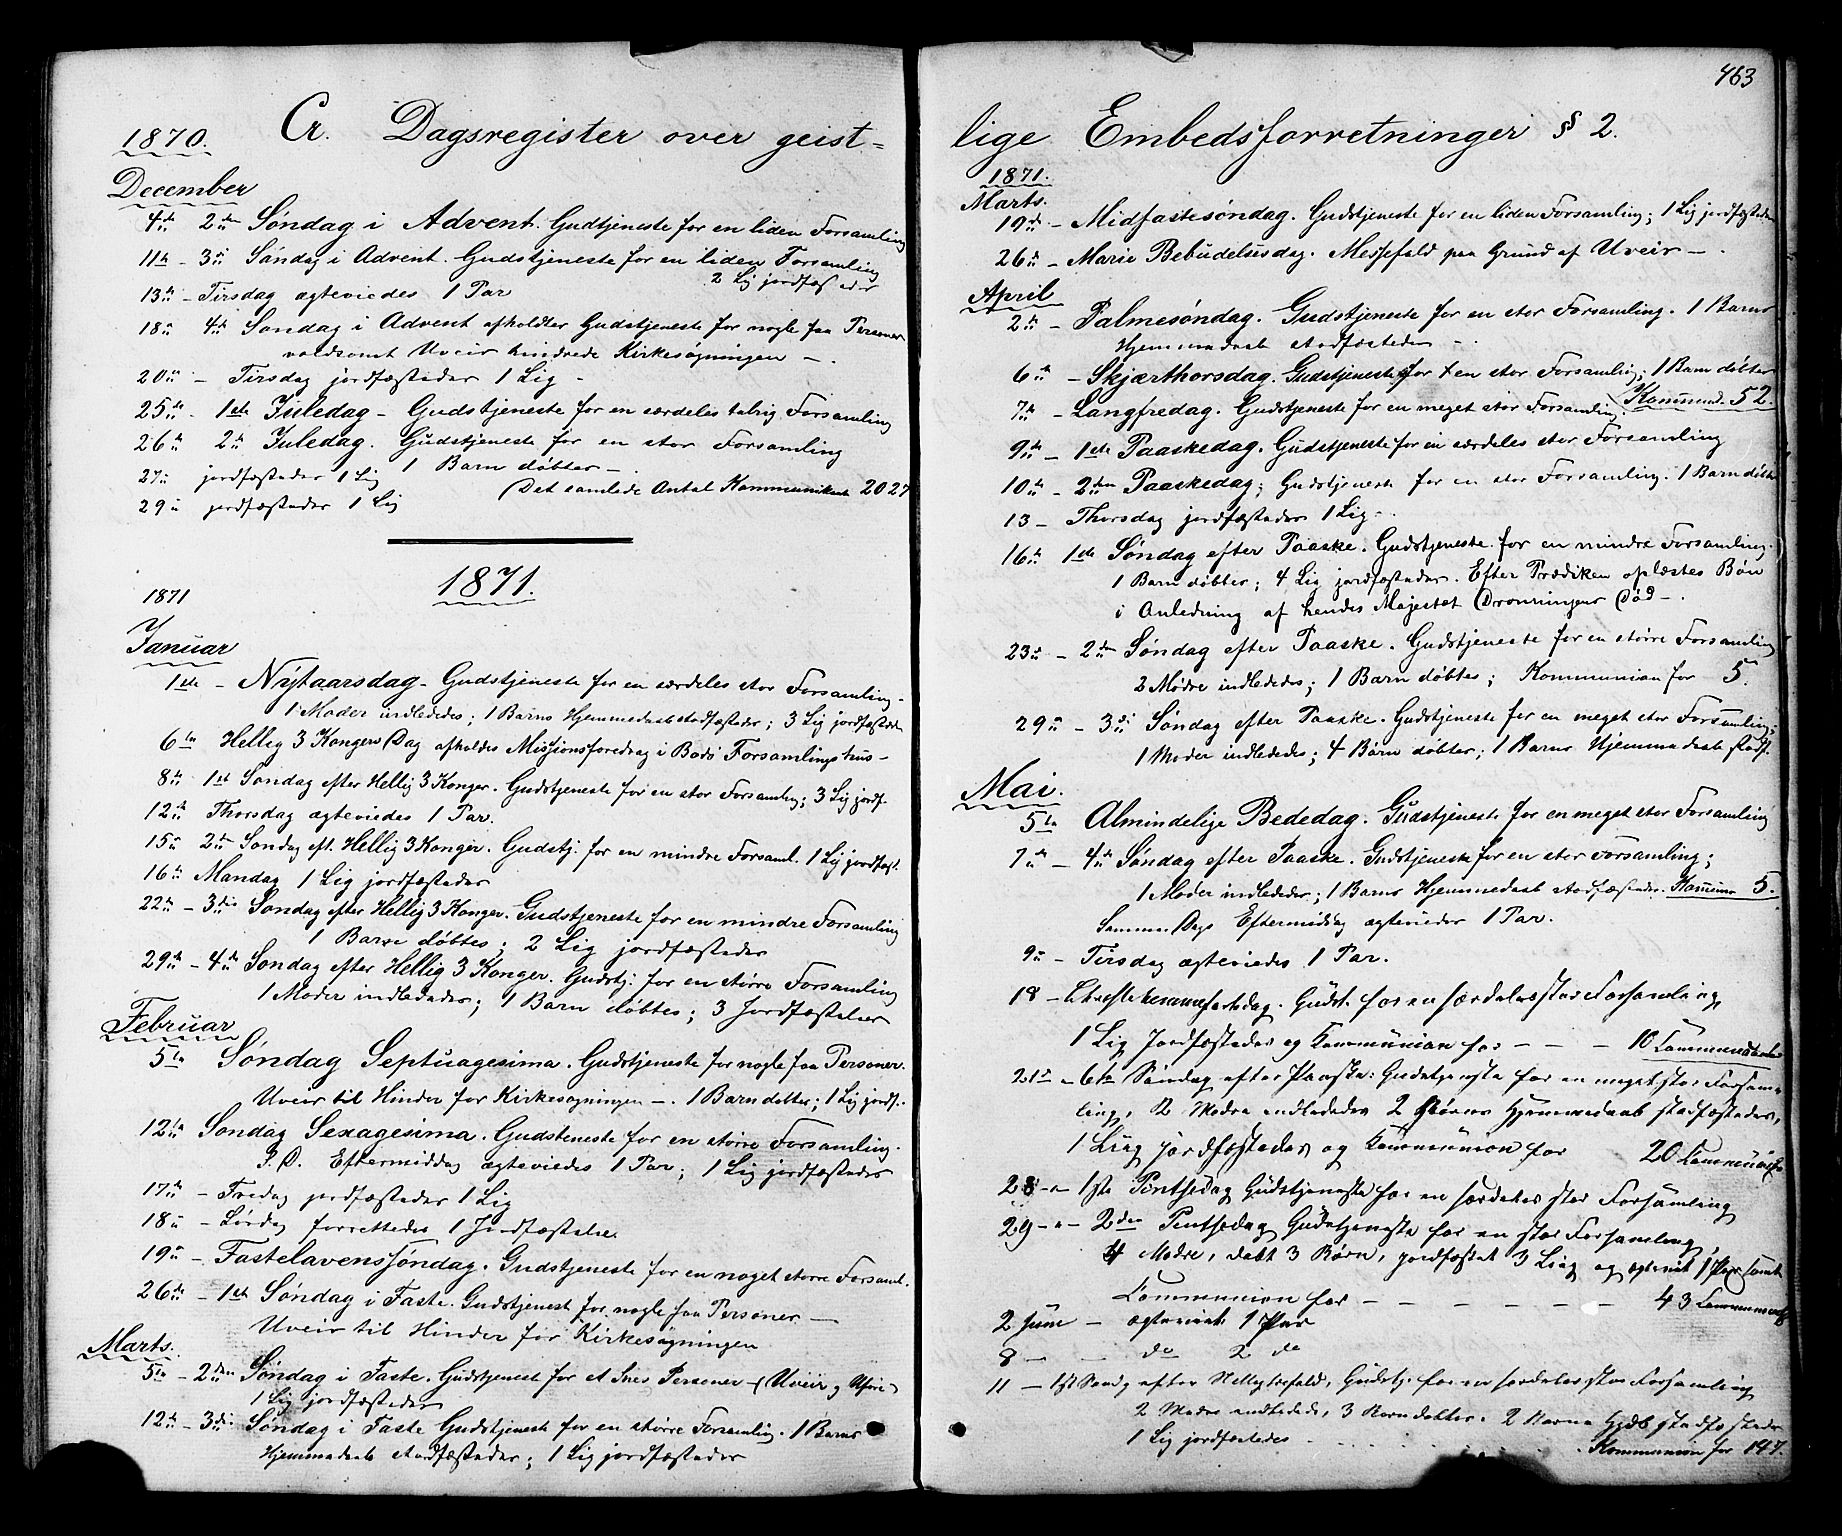 Cr. Dagsregister over geist-
1870.
December
4de 2den Søndag i Advent. Gudtjeneste for en liden Forsamling
11te - 3die Søndag i Advent. Gudstjeneste for en liden Forsamling
2 Lig jordfæstedes
13de - Tirsdag ægteviedes 1 Par
18de 4de Søndag i Advent afholdtes Gudstjeneste for nogle faa Personer
voldsomt Uveir hindrede Kirkesøgningen -.
20de - Tirsdag jordfæstedes 1 Lig -
25de 1ste Juledag - Gudstjeneste for en særdeles talrig Forsamling
26de 2den Juledag. Gudstjeneste for en stor Forsamling
1 Barn døbtes -.
27de jordfæstedes 1 Lig
(Det samlede Antal Kommunikanter 2027
29de jordfæstedes 1 Lig
1871.
1871
Januar
1ste - Nytaarsdag - Gudstjeneste for en særdeles stor Forsamling -
1 Moder indlededes; 1 Barns Hjemmedaab stadfæstedes; 3 Lig jordfæstede
6te Hellig 3 Kongers Dag afholdes Missionsforedrag i Bodø Forsamlingshus -
8de 1ste Søndag efter Hellig 3 Konger. Gudstjeneste for en stor Forsamling; 3 Lig jordf.
12te Thorsdag ægteviedes 1 Par.
15de 2den Søndag eft. Hellig 3 Konger. Gudstj. for en mindre Forsaml. 1 Lig jordfæst.
16de Mandag 1 Lig jordfæstedes
22de - 3die Søndag efter Hellig 3 Konger. Gudstjeneste for en mindre Forsamling
1 Barn døbtes; 2 Lig jordfæstedes
29de - 4de Søndag efter Hellig 3 Konger. Gudstj. for en større Forsamling
1 Moder indlededes; 1 Barn døbtes; 3 Jordfæstelser
Februar
5te Søndag Septuagesima. Gudstjeneste for nogle faa Personer.
Uveir til Hinder for Kirkesøgningen -. 1 Barn døbtes; 1 Lig jordf.
12te Søndag Sexagesima. Gudsteneste for en større Forsamling.
S. D. Eftermiddag ægteviedes 1 Par; 1 Lig jordfæstedes
17de - Fredag jordfæstedes 1 Lig
18de - Lørdag forrettedes 1 Jordfæstelse
19de - Fastelavenssøndag. Gudstjeneste for en noget større Forsaml.
26de - 1ste Søndag i Faste. Gudstjenest for nogle faa Personer -
Uveir til Hinder for Kirkesøgningen
Marts.
5te - 2den Søndag i Faste. Gudstjenest for et Snes Personer - (Uveir og
1 Lig jordfæstedes
12te - 3die Søndag i Faste Gudstjeneste for en større Forsamling. 1 Barns
Hjemmedaab stadfæstedes; 1 Lig jordfæstedes
463
lige Embedsforretninger § 2.
1871.
Marts.
19de - Midfastesøndag. Gudstjeneste for en liden Forsamling; 1 Lig jordfæstedes
26de - Marie Bebudelsesdag. Messefald paa Grund af Uveir -.
April
2den - Palmesøndag. Gudstjeneste for en stor Forsamling. 1 Barns
Hjemmedaab stadfæstedes -.
6te - Skjærthorsdag. Gudstjeneste for en stor Forsamling; 1 Barn døbtes
Kommun. 52.
7de - Langfredag. Gudstjeneste for en meget stor Forsamling.
9de - 1ste Paaskedag. Gudstjeneste for en særdeles stor Forsamling
10de - 2den Paaskedag; Gudstjeneste for en stor Forsamling. 1 Barn døbtes
13 - Thorsdag jordfæstedes 1 Lig -.
16de 1ste Søndag efter Paaske. Gudstjeneste for en mindre Forsamling.
1 Barn døbtes; 4 Lig jordfæstedes. Efter Prædiken oplæstes Bøn
i Anledning af hendes Majestæt Dronningens Død -.
23de - 2den Søndag efter Paaske. Gudstjeneste for en større Forsamling
2 Mødre indlededes; 1 Barn døbtes; Kommunion for 5.
29de - 3die Søndag efter Paaske. Gudstjeneste for en meget stor Forsamling;
1 Moder indlededes; 4 Børn døbtes; 1 Barns Hjemmedaab stadf.
Mai.
5te Almindelige Bededag. Gudstjeneste for en meget stor Forsamling
7de - 4de Søndag efter Paaske. Gudstjeneste for en stor Forsamling;
1 Moder indlededes; 1 Barns Hjemmedaab stadfæstedes. Kommun 5.
Samme Dags Eftermiddag ægteviedes 1 Par.
9de - Tirsdag ægteviedes 1 Par.
18 - Christi himmelfartsdag. Gudst. for en særdeles stor Forsamling,
1 Lig Jordfæstedes og Kommunion for - - - 10 Communikanter
21de - 6te Søndag efter Paaske. Gudstjeneste for en meget stor Forsam-
ling, 2 Mødre indlededes 2 Børns Hjemmedaab stadfæstedes,
1 Liig jordfæstedes og Kommunion for 20 Communik
28 - 1ste Pintsedag Gudstjeneste for en særdeles stor Forsamling
29 - 2den Pintsedag Gudstjeneste for en stor Forsamling,
4 Mødre, døbt 3 Børn, jordfæstet 3 Liig og ægteviet 1 Par samt
Communion for - - - - - - 43 Communik
2 Juni - ægteviet 1 Par
8 - - do 2 do
11 - 1ste Sønd. efter Gudstj. for en særdeles stor Forsamling
2 Mødre indledede, 3 Børn døbtes. 2 Børns Hjdb stadfæstedes
1 Lig jordfæstedes . . . . . Kommunion for 147.